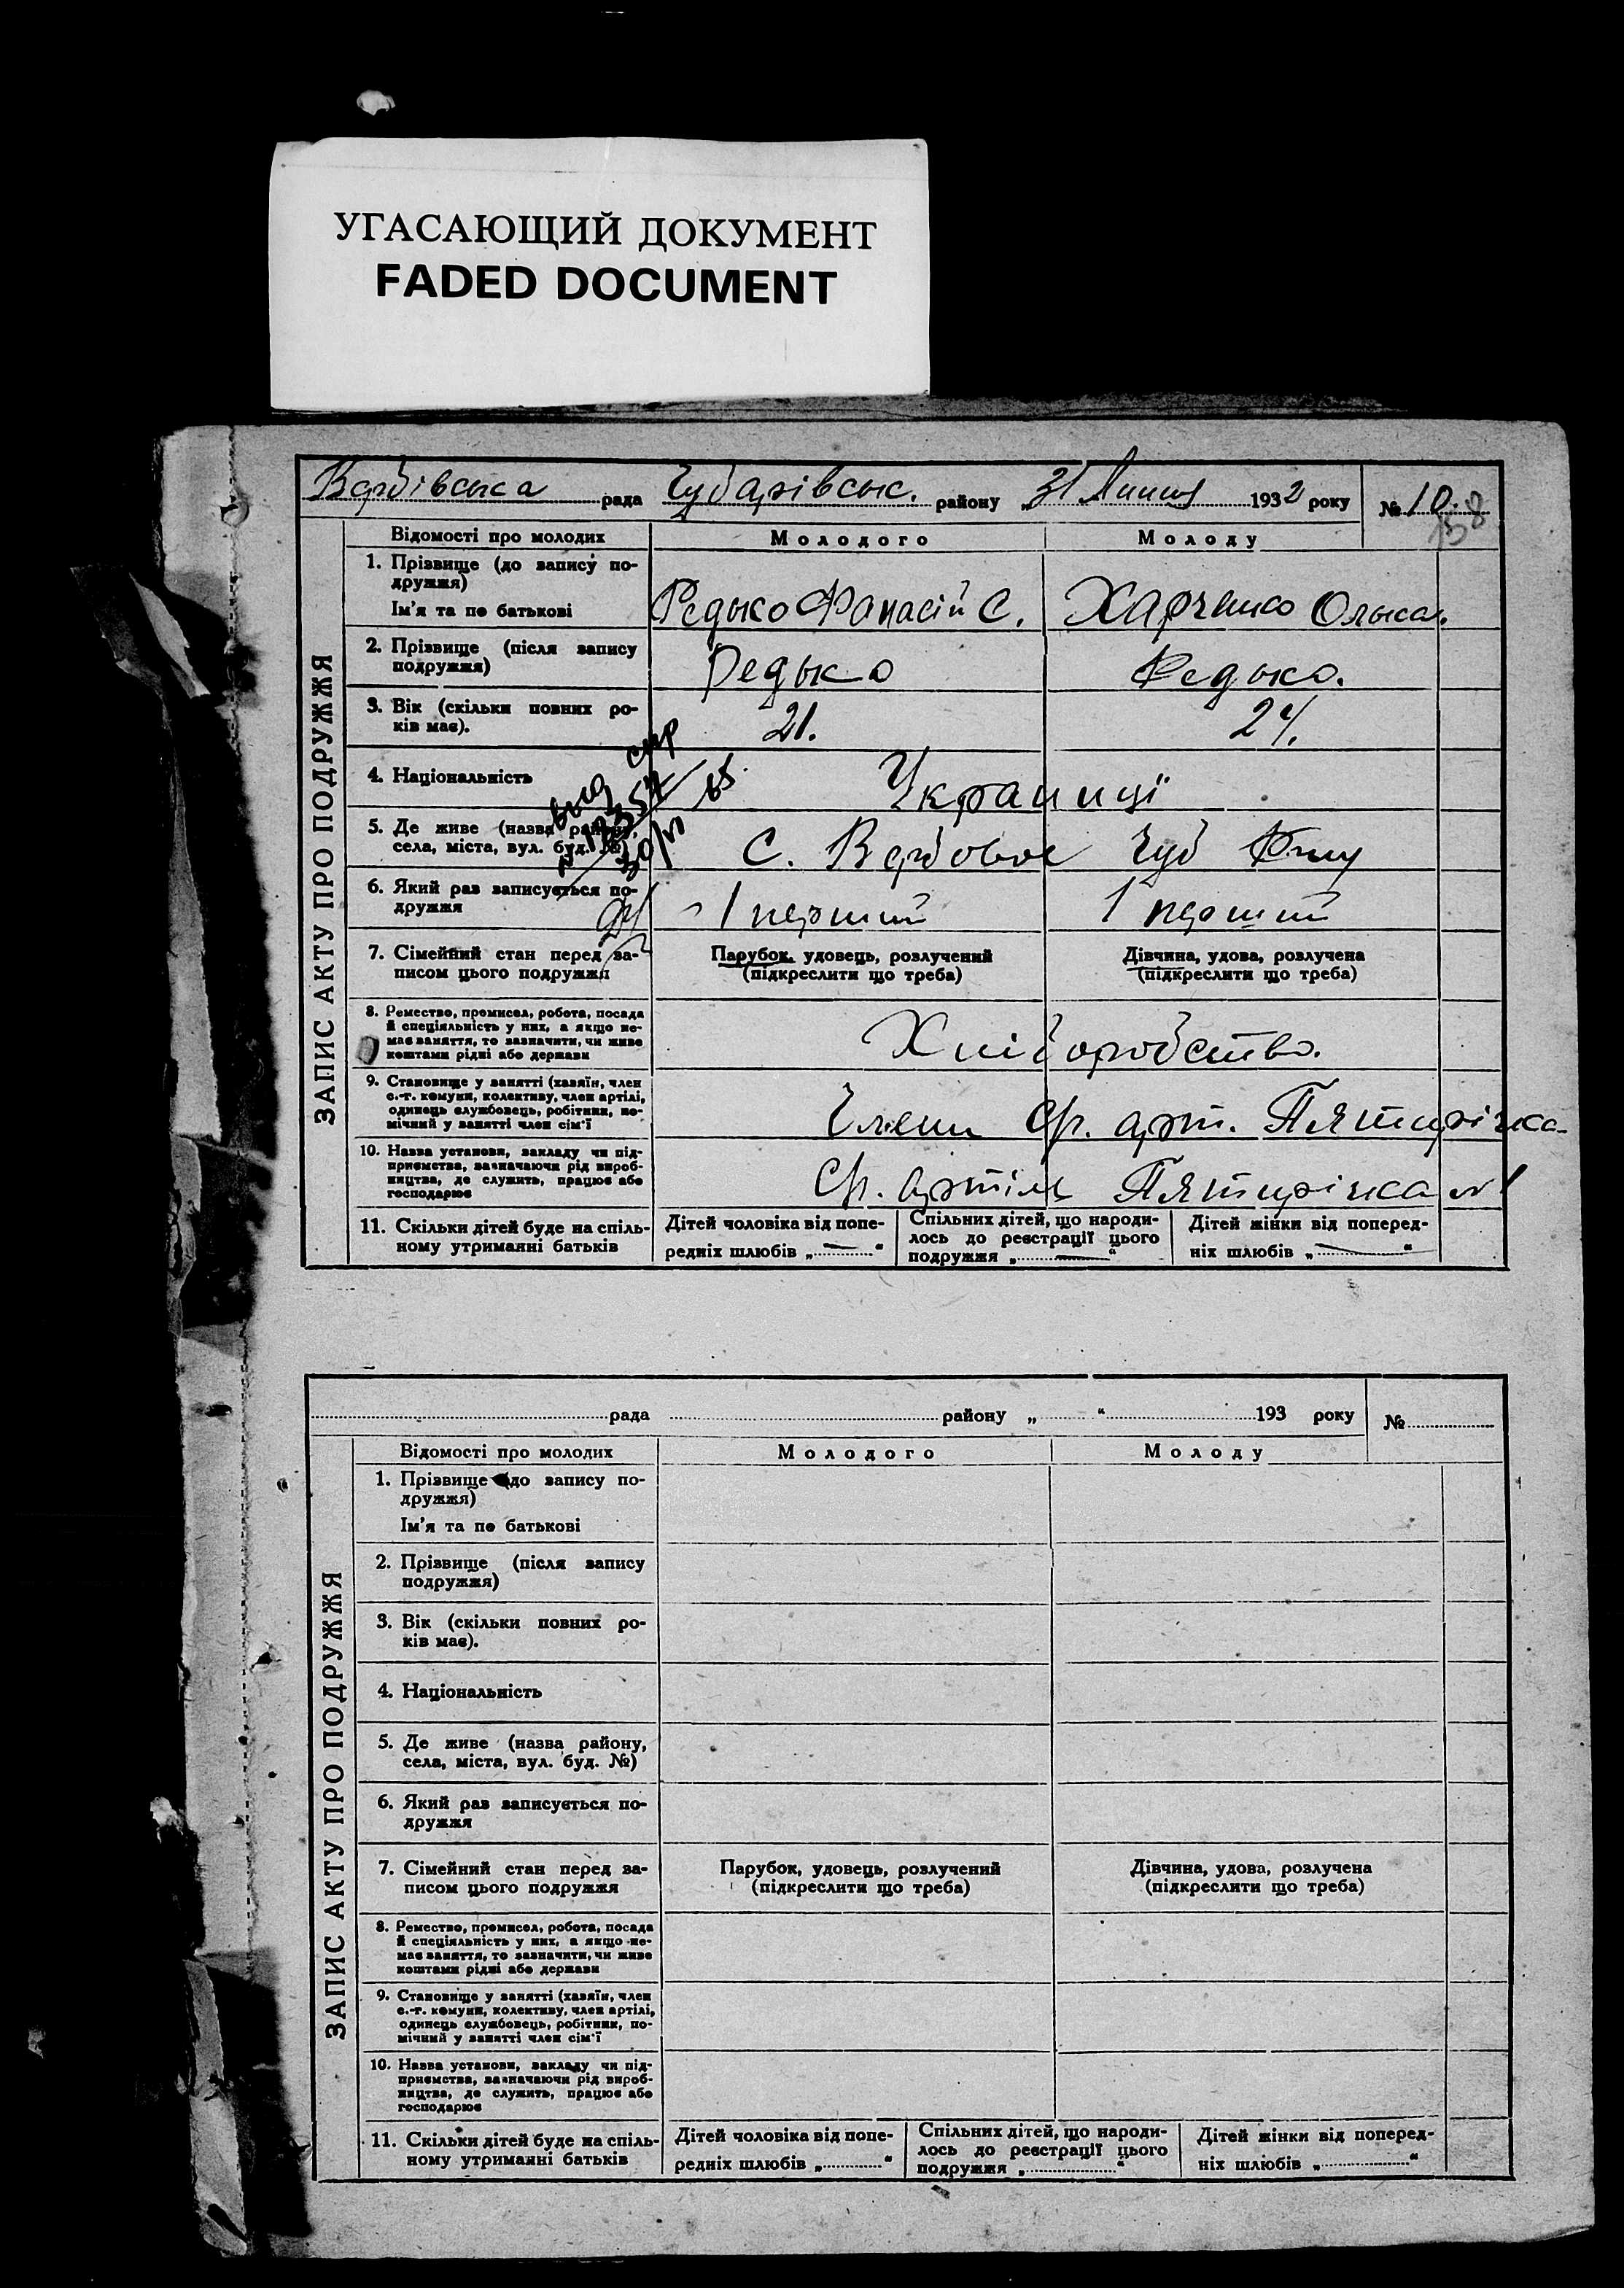 УГАСАЮЩИЙ ДОКУМЕНТ
FADED DOCUMENT
Вербівська рада Чубарівськ. району „31 Липня 1932 року № 10.
ЗАПИС АКТУ ПРО ПОДРУЖЖЯ
Відомості про молодих Молодого Молоду
1. Прізвище (до запису по-
дружжя)
Ім'я та по батькові Редько Фанасій С. Харченко Олька.
2. Прізвище (після запису
подружжя) Редько Редько.
3. Вік (скільки повних ро-
ків має). 21. 24.
4. Національність Українці
5. Де живе (назва району,
села, міста, вул. буд. №) С. Вербовое Чуб
6. Який раз записується по-
дружжя 1 перший 1 перший
7. Сімейний стан перед за-
писом цього подружжя
Парубок, удовець, розлучений
(підкреслити що треба)
Дівчина, удова, розлучена
(підкреслити що треба)
8. Ремество, промисел, робота, посада
й спеціяльність у них, а якщо не-
має заняття, то зазначити, чи живе
коштами рідні або держави
Хліборобство.
9. Становище у занятті (хазяїн, член
с.-г. комуни, колективу, член артілі,
одинець службовець, робітник, по-
мічний у занятті член сім'ї
Члени Ср. арт. Пятирічка
10. Назва установи, закладу чи під-
приємства, зазначаючи рід вироб-
ництва, де служить, працює або
господарює
Ср. артіль Пятирічка №1
11. Скільки дітей буде на спіль-
ному утриманні батьків
Дітей чоловіка від попе-
редніх шлюбів „ — “
Спільних дітей, що народи-
лось до реєстрації цього
подружжя „ — “
Дітей жінки від поперед-
ніх шлюбів „ — “
рада району „ “ 193 року №
ЗАПИС АКТУ ПРО ПОДРУЖЖЯ
Відомості про молодих Молодого Молоду
1. Прізвище (до запису по-
дружжя)
Ім'я та по батькові
2. Прізвище (після запису
подружжя)
3. Вік (скільки повних ро-
ків має).
4. Національність
5. Де живе (назва району,
села, міста, вул. буд. №)
6. Який раз записується по-
дружжя
7. Сімейний стан перед за-
писом цього подружжя
Парубок, удовець, розлучений
(підкреслити що треба)
Дівчина, удова, розлучена
(підкреслити що треба)
8. Ремество, промисел, робота, посада
й спеціяльність у них, а якщо не-
має заняття, то зазначити, чи живе
коштами рідні або держави
9. Становище у занятті (хазяїн, член
с.-г. комуни, колективу, член артілі,
одинець службовець, робітник, по-
мічний у занятті член сім'ї
10. Назва установи, закладу чи під-
приємства, зазначаючи рід вироб-
ництва, де служить, працює або
господарює
11. Скільки дітей буде на спіль-
ному утриманні батьків
Дітей чоловіка від попе-
редніх шлюбів „ “
Спільних дітей, що народи-
лось до реєстрації цього
подружжя „ “
Дітей жінки від поперед-
ніх шлюбів „ “